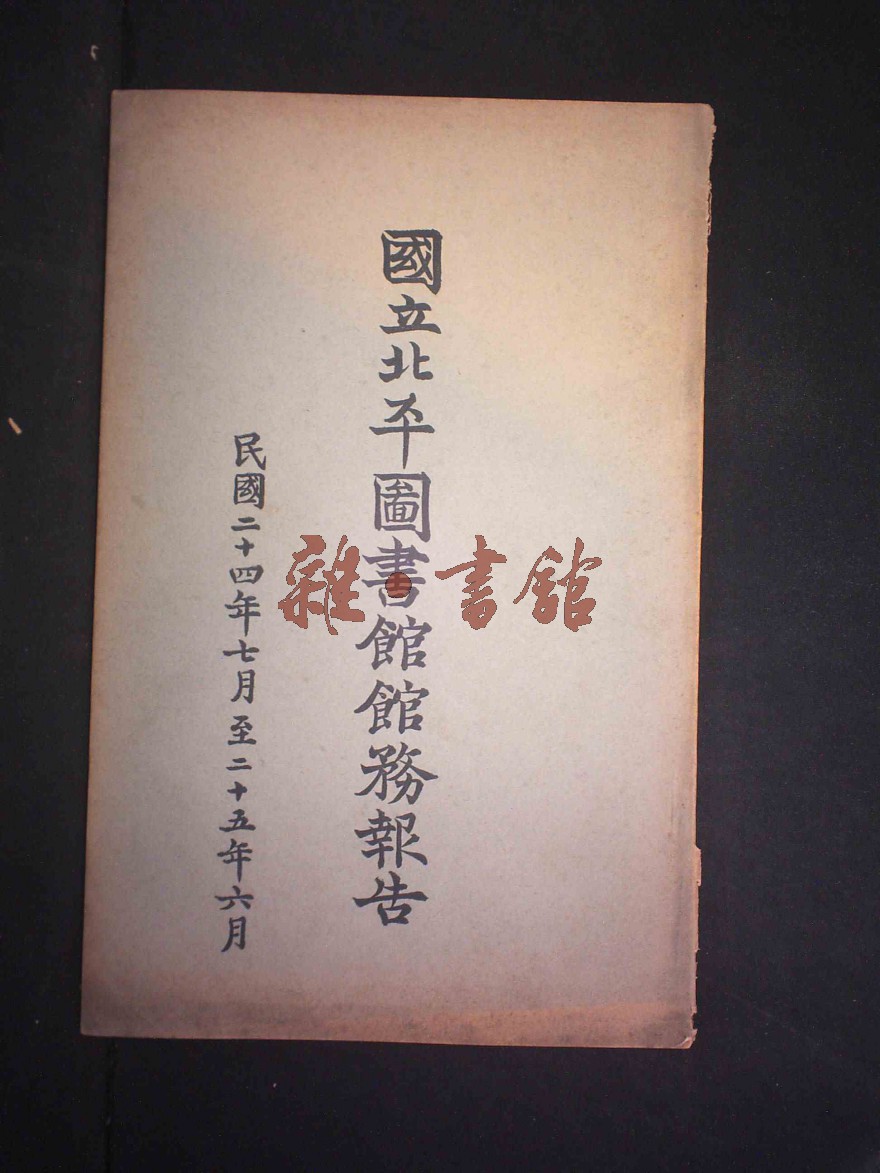 國立北平圖書館館務報告
民國二十四年七月至二十五年六月
雜書館